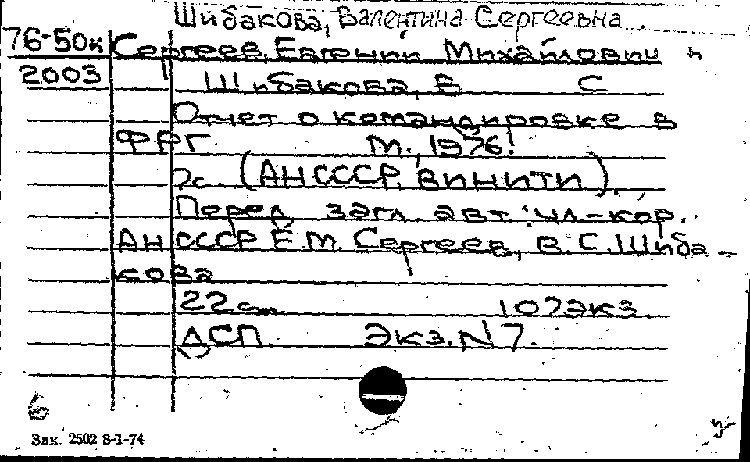 Шибакова, Валентина Сергеевна
76-50к Сергеев, Евгений Михайлович и
2003 Шибакова, В С
Отчет о командировке в
ФРГ М., 1976.
2с. (АН СССР. ВИНИТИ).
Перед загл. авт.: чл.-кор.
АН СССР Е.М. Сергеев, В.С. Шиба-
кова
22с. 107экз.
ДСП. Экз. N 7.
6
Зак. 2502 8-1-74